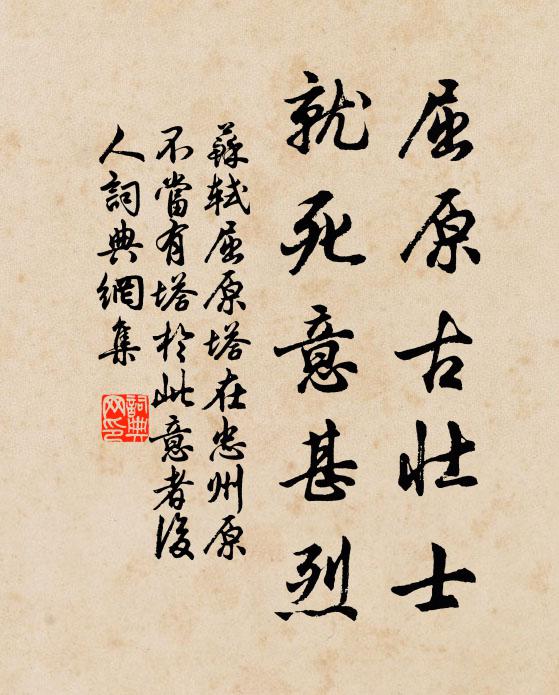 屈原古壯士
就死意甚烈
蘇軾屈原塔在忠州原
不當有塔於此意者後
人詞典網集
詞典網印